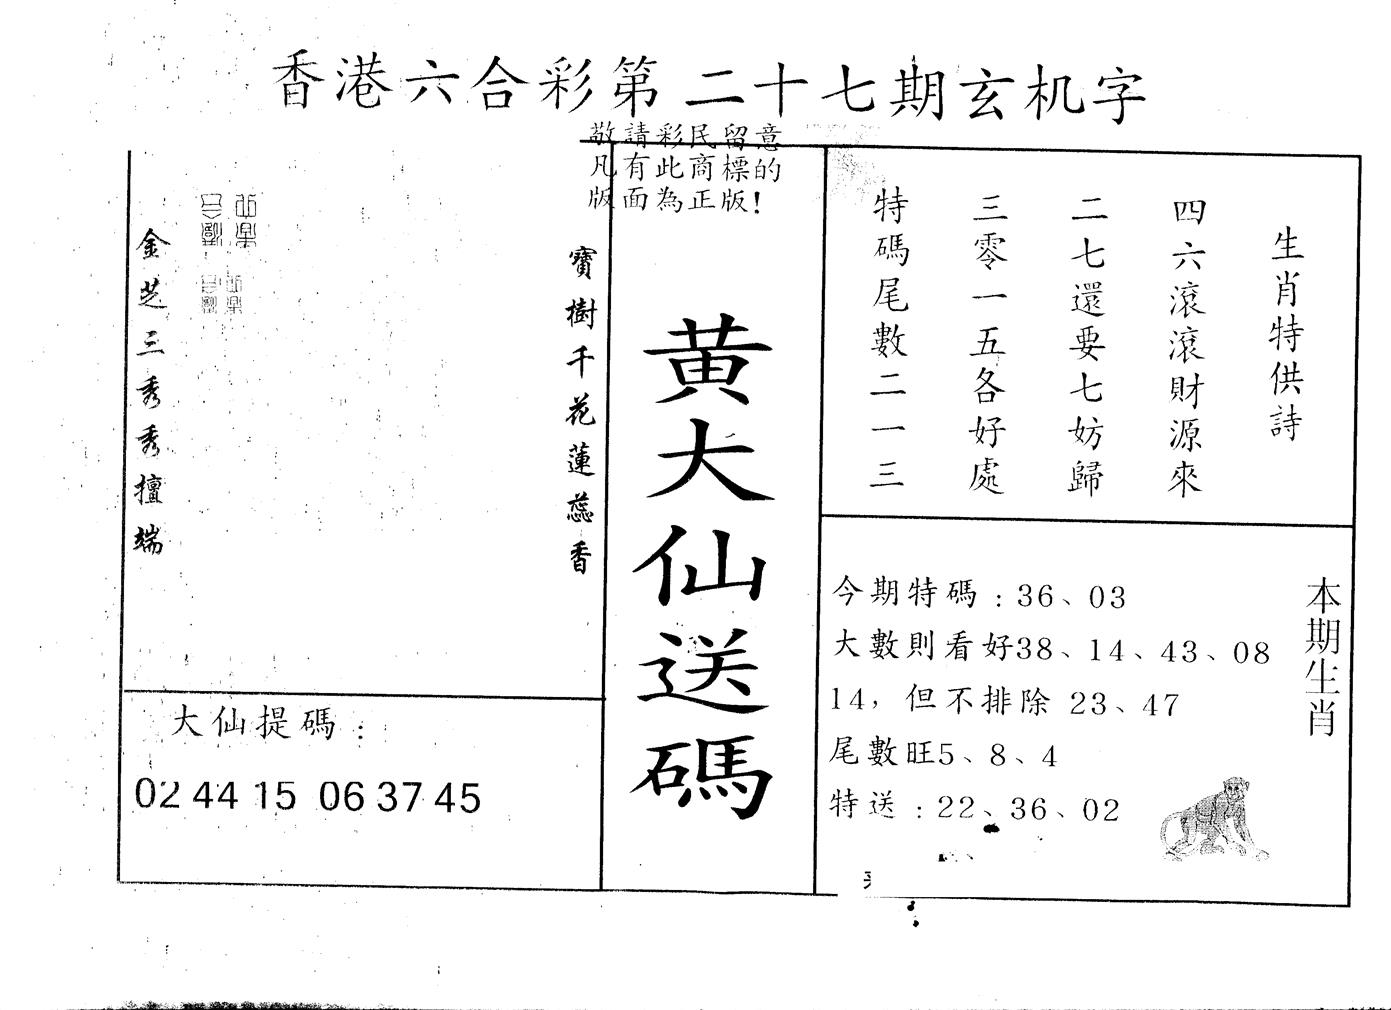 香港六合彩第二十七期玄机字
敬請彩民留意
凡有此商標的
版面為正版!
生肖特供詩
四六滾滾財源來
二七還要七妨歸
三零一五各好處
特碼尾數二一三
黄大仙送碼
寶樹千花蓮蕊香
金芝三秀秀擅端
大仙提碼:
02 44 15 06 37 45
本期生肖
今期特碼:36、03
大數則看好38、14、43、08
14,但不排除 23、47
尾數旺5、8、4
特送:22、36、02